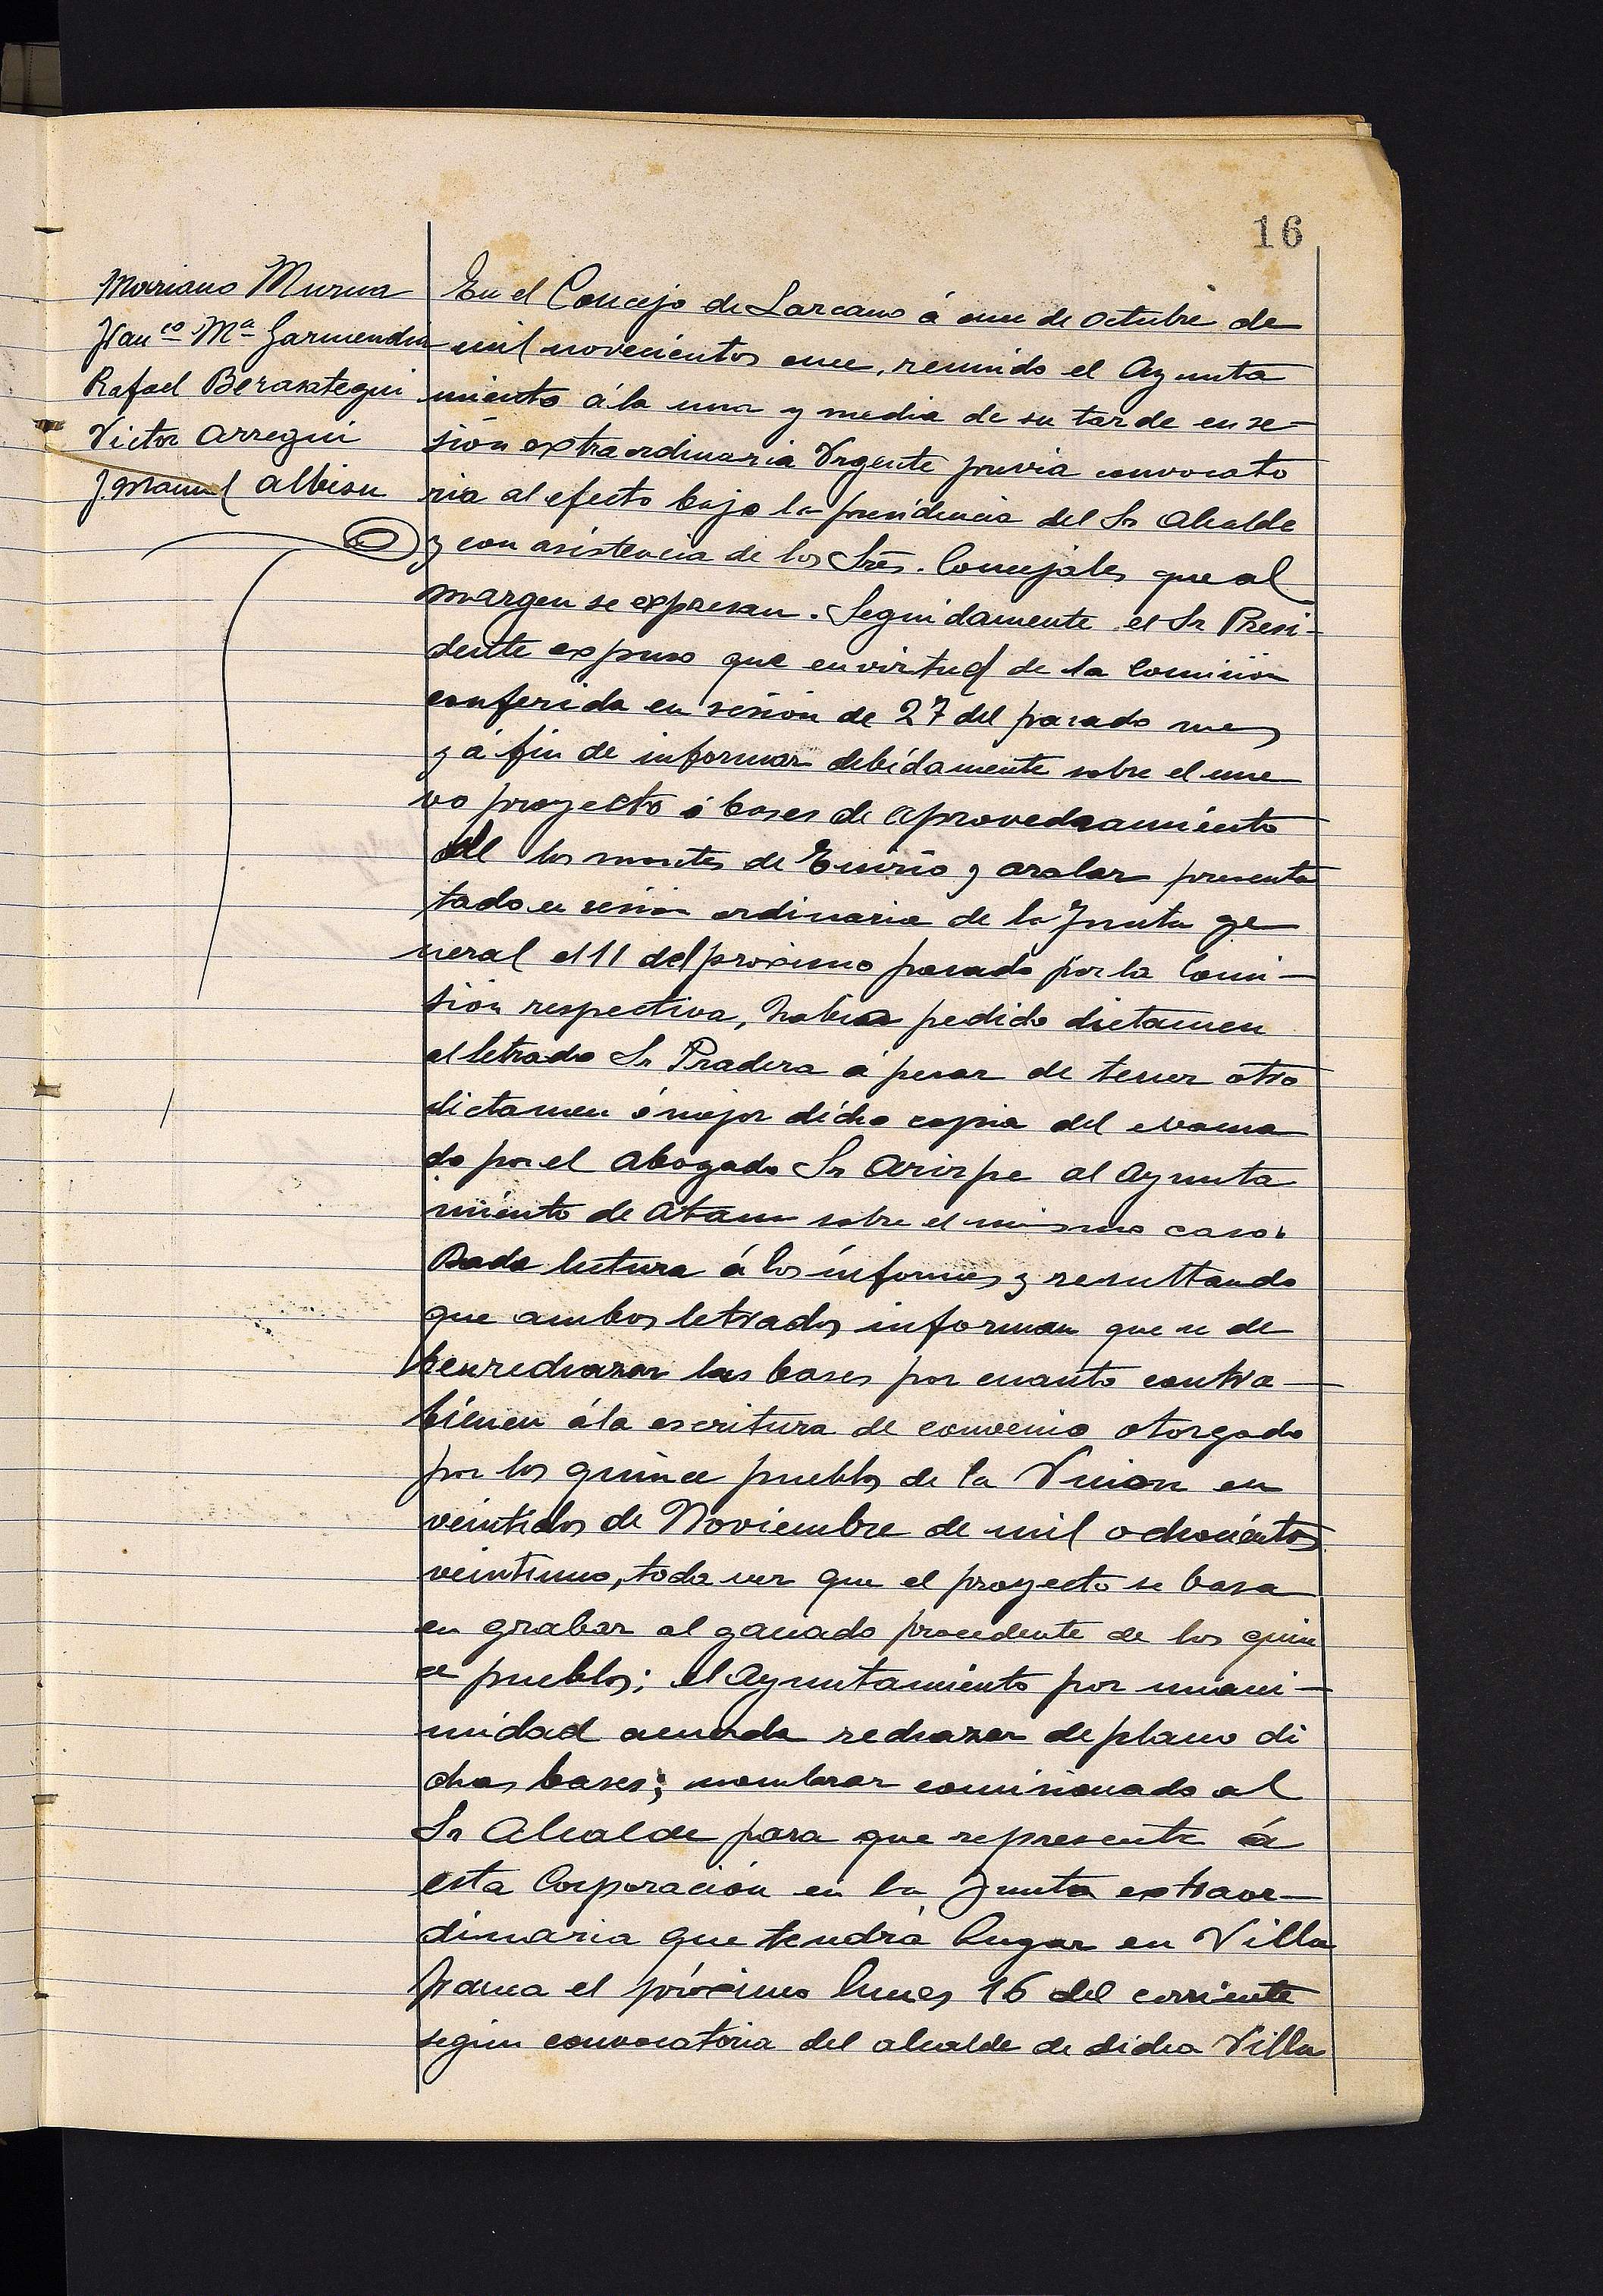 16
Mariano Murua
Franco Ma Garmendia
Rafael Berasategui
Victor Arregui
J. Manuel Albisu
En el Concejo de Lazcano á once de octubre de
mil novecientos once, reunido el Ayunta
miento á la una y media de su tarde en se-
sión extraordinaria Urgente previa convocato
ria al efecto bajo la presidencia del Sr Alcalde
y con asistencia de los Sres. Concejales que al
margen se expresan. Seguidamente el Sr Presi-
dente expuso que en virtud de la comisión
conferida en sesión de 27 del pasado mes
y á fin de informar debidamente sobre el nue
vo proyecto ó bases de aprovechamiento
de los montes de Enirio y aralar presenta
tado en sesión ordinaria de la Junta ge
neral el 11 del proximo pasado por la Comi-
sión respectiva, habia pedido dictamen
al letrado Sr Pradera á pesar de tener otro
dictamen ó mejor dicho copia del evacua
do por el abogado Sr Arizpe al Ayunta
miento de Ataun sobre el mismo caso.
Dada lectura á los informes y resultando
que ambos letrados informan que se de
ben rechazar las bases por cuanto contra-
bienen á la escritura de convenio otorgado
por los quince pueblos de la Union en
veintidos de Noviembre de mil ochocientos
veintiuno, toda vez que el proyecto se basa
en grabar al ganado procedente de los quin
ce pueblos; el Ayuntamiento por unani-
midad acuerda rechazar de plano di
chas bases; nombrar comisionado al
Sr Alcalde para que represente á
esta Corporación en la Junta extraor-
dinaria que tendrá lugar en Villa
franca el próximo lunes 16 del corriente
según convocatoria del alcalde de dicha Villa